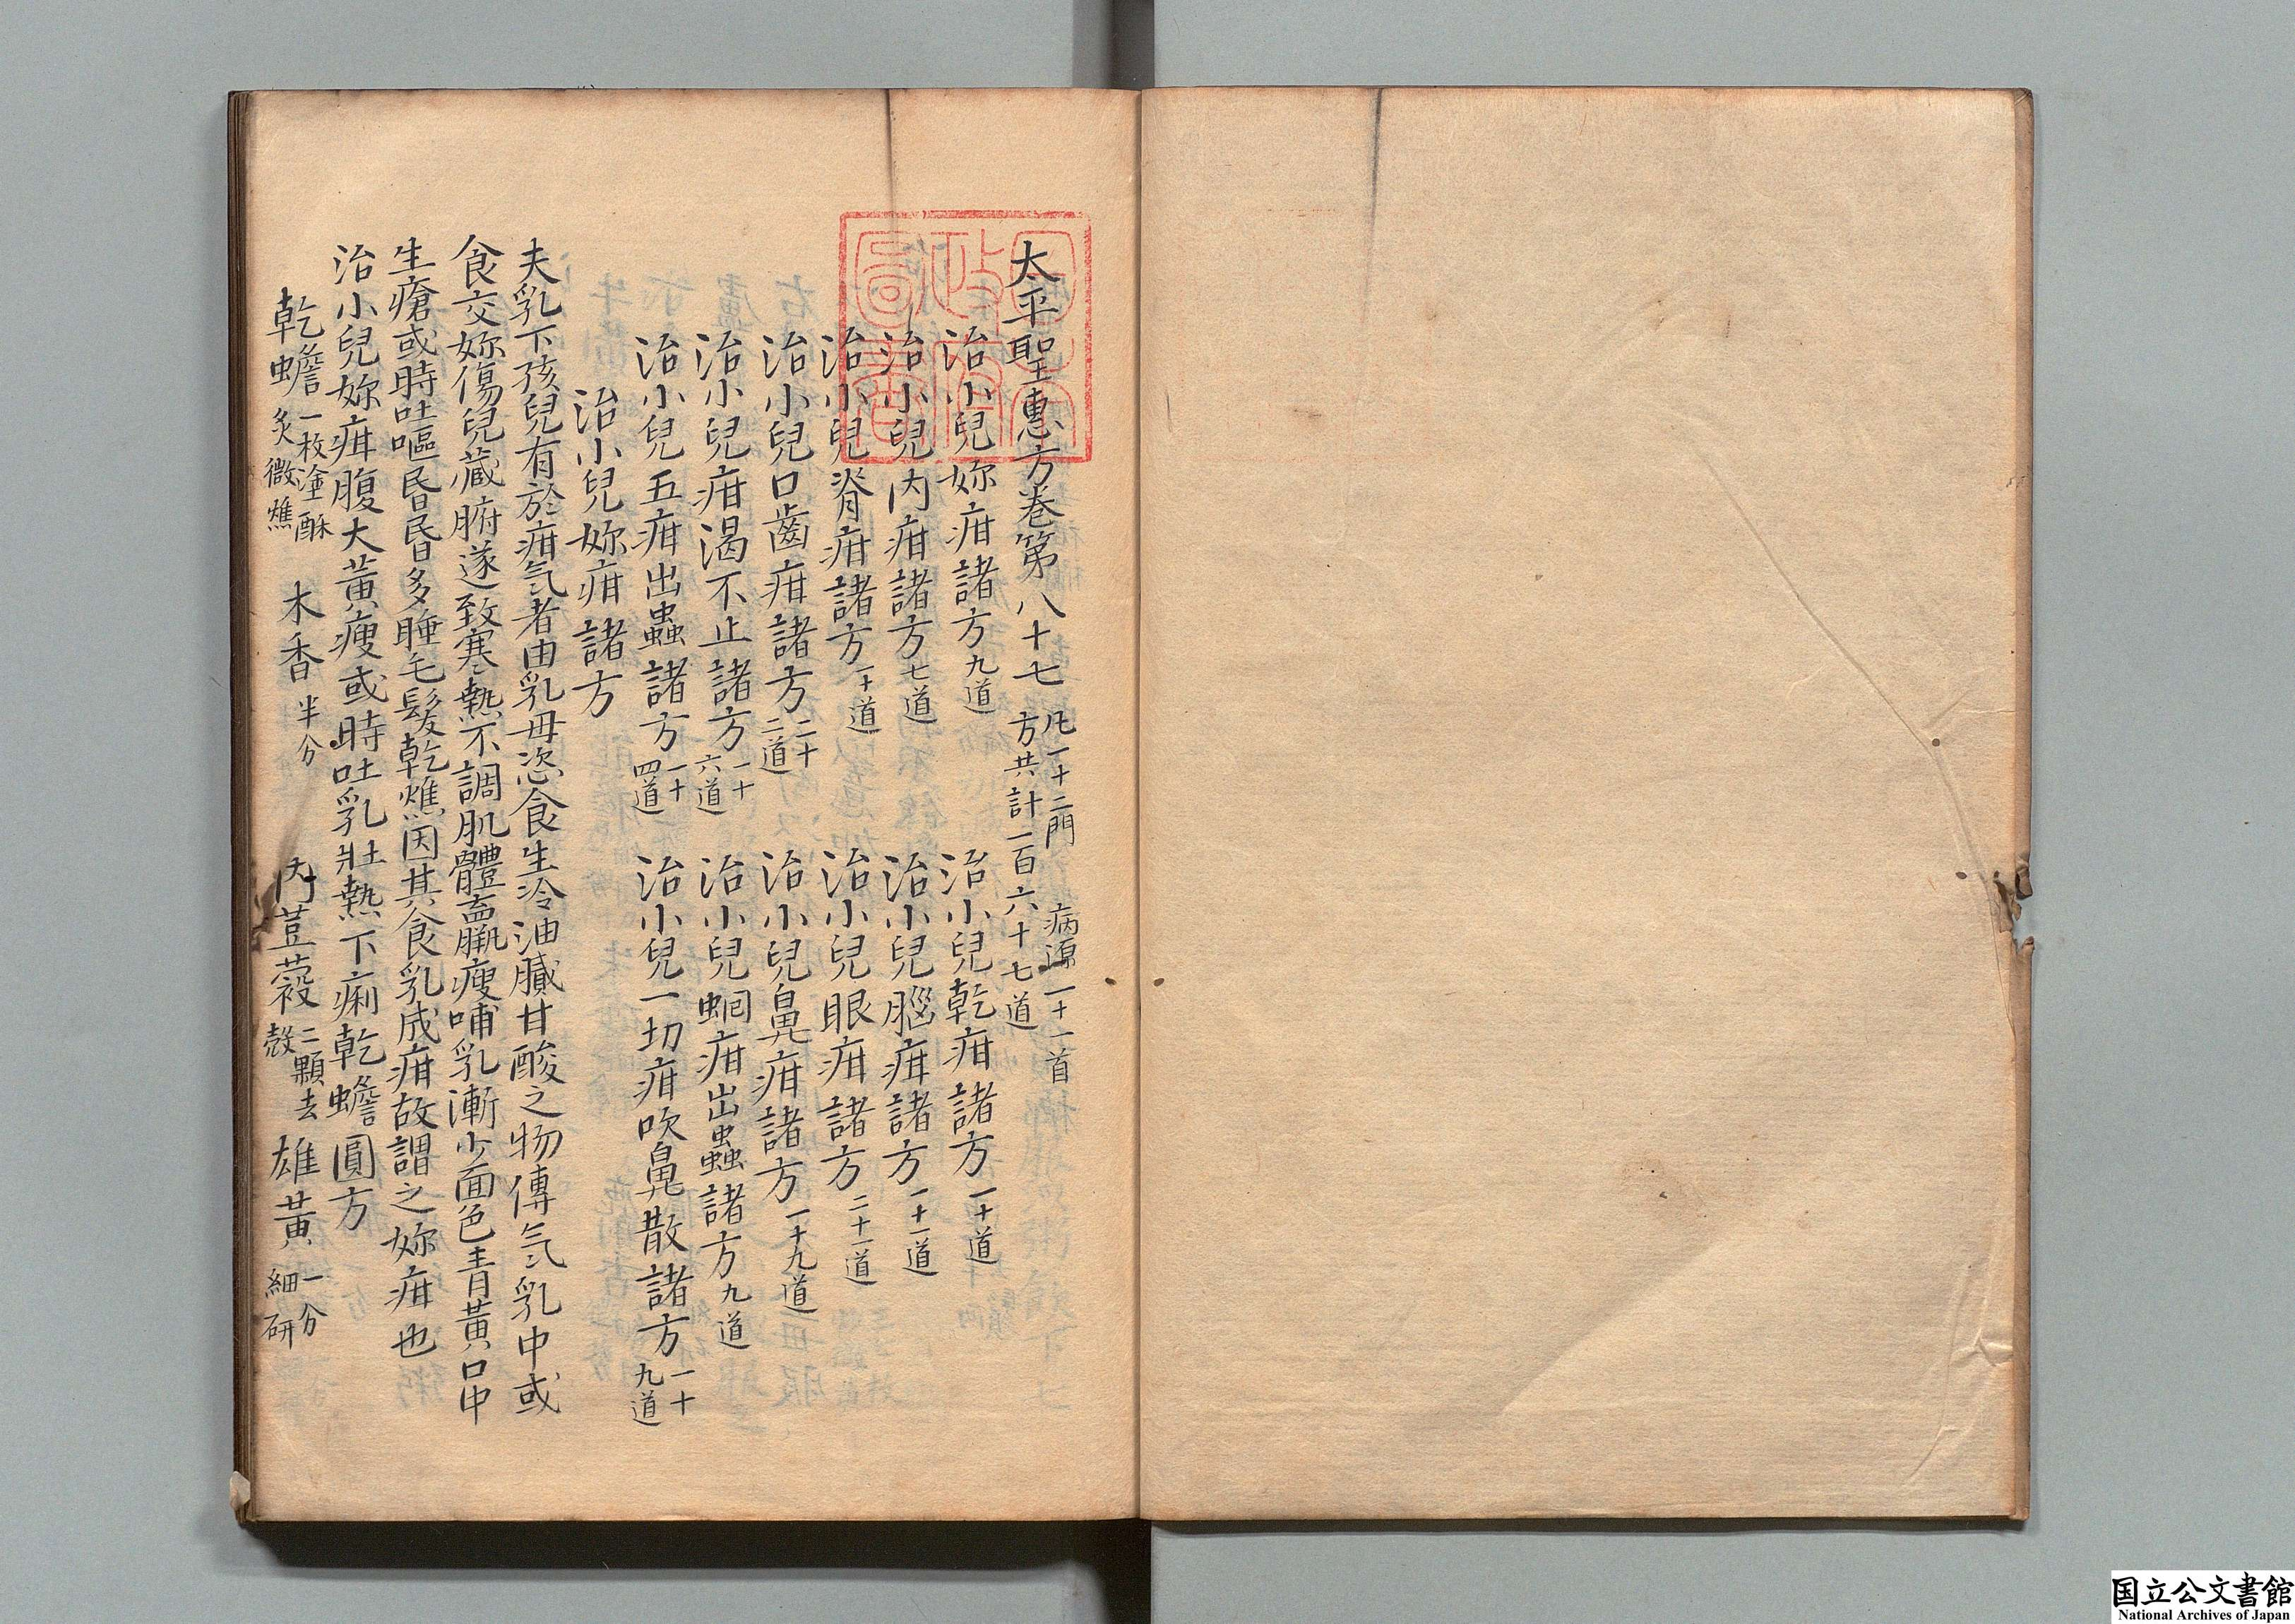 太平聖惠方卷第八十七 凡一十二門 病源一十一首 方共計一百六十七道
治小兒妳疳諸方九道 治小兒乾疳諸方一十道
治小兒内疳諸方七道 治小兒腦疳諸方一十一道
治小兒脊疳諸方一十道 治小兒眼疳諸方二十一道
治小兒口齒疳諸方二十二道 治小兒鼻疳諸方一十九道
治小兒疳渴不止諸方一十六道 治小兒蛔疳出蟲諸方九道
治小兒五疳出蟲諸方一十四道 治小兒一切疳吹鼻散諸方一十九道
治小兒妳疳諸方
夫乳下孩兒有於疳氣者由乳母恣食生冷油膩甘酸之物傳氣乳中或
食交妳傷兒藏腑遂致寒熱不調肌體羸瘦哺乳漸少面色青黃口中
生瘡或時吐嘔昏昏多睡毛髮乾燋因其食乳成疳故謂之妳疳也
治小兒妳疳腹大黃瘦或時吐乳壯熱下痢乾蟾圓方
乾蟾一枚塗酥炙微燋 木香半分 肉荳蔻二顆去殼 雄黃一分細研
国立公文書館
National Archives of Japan